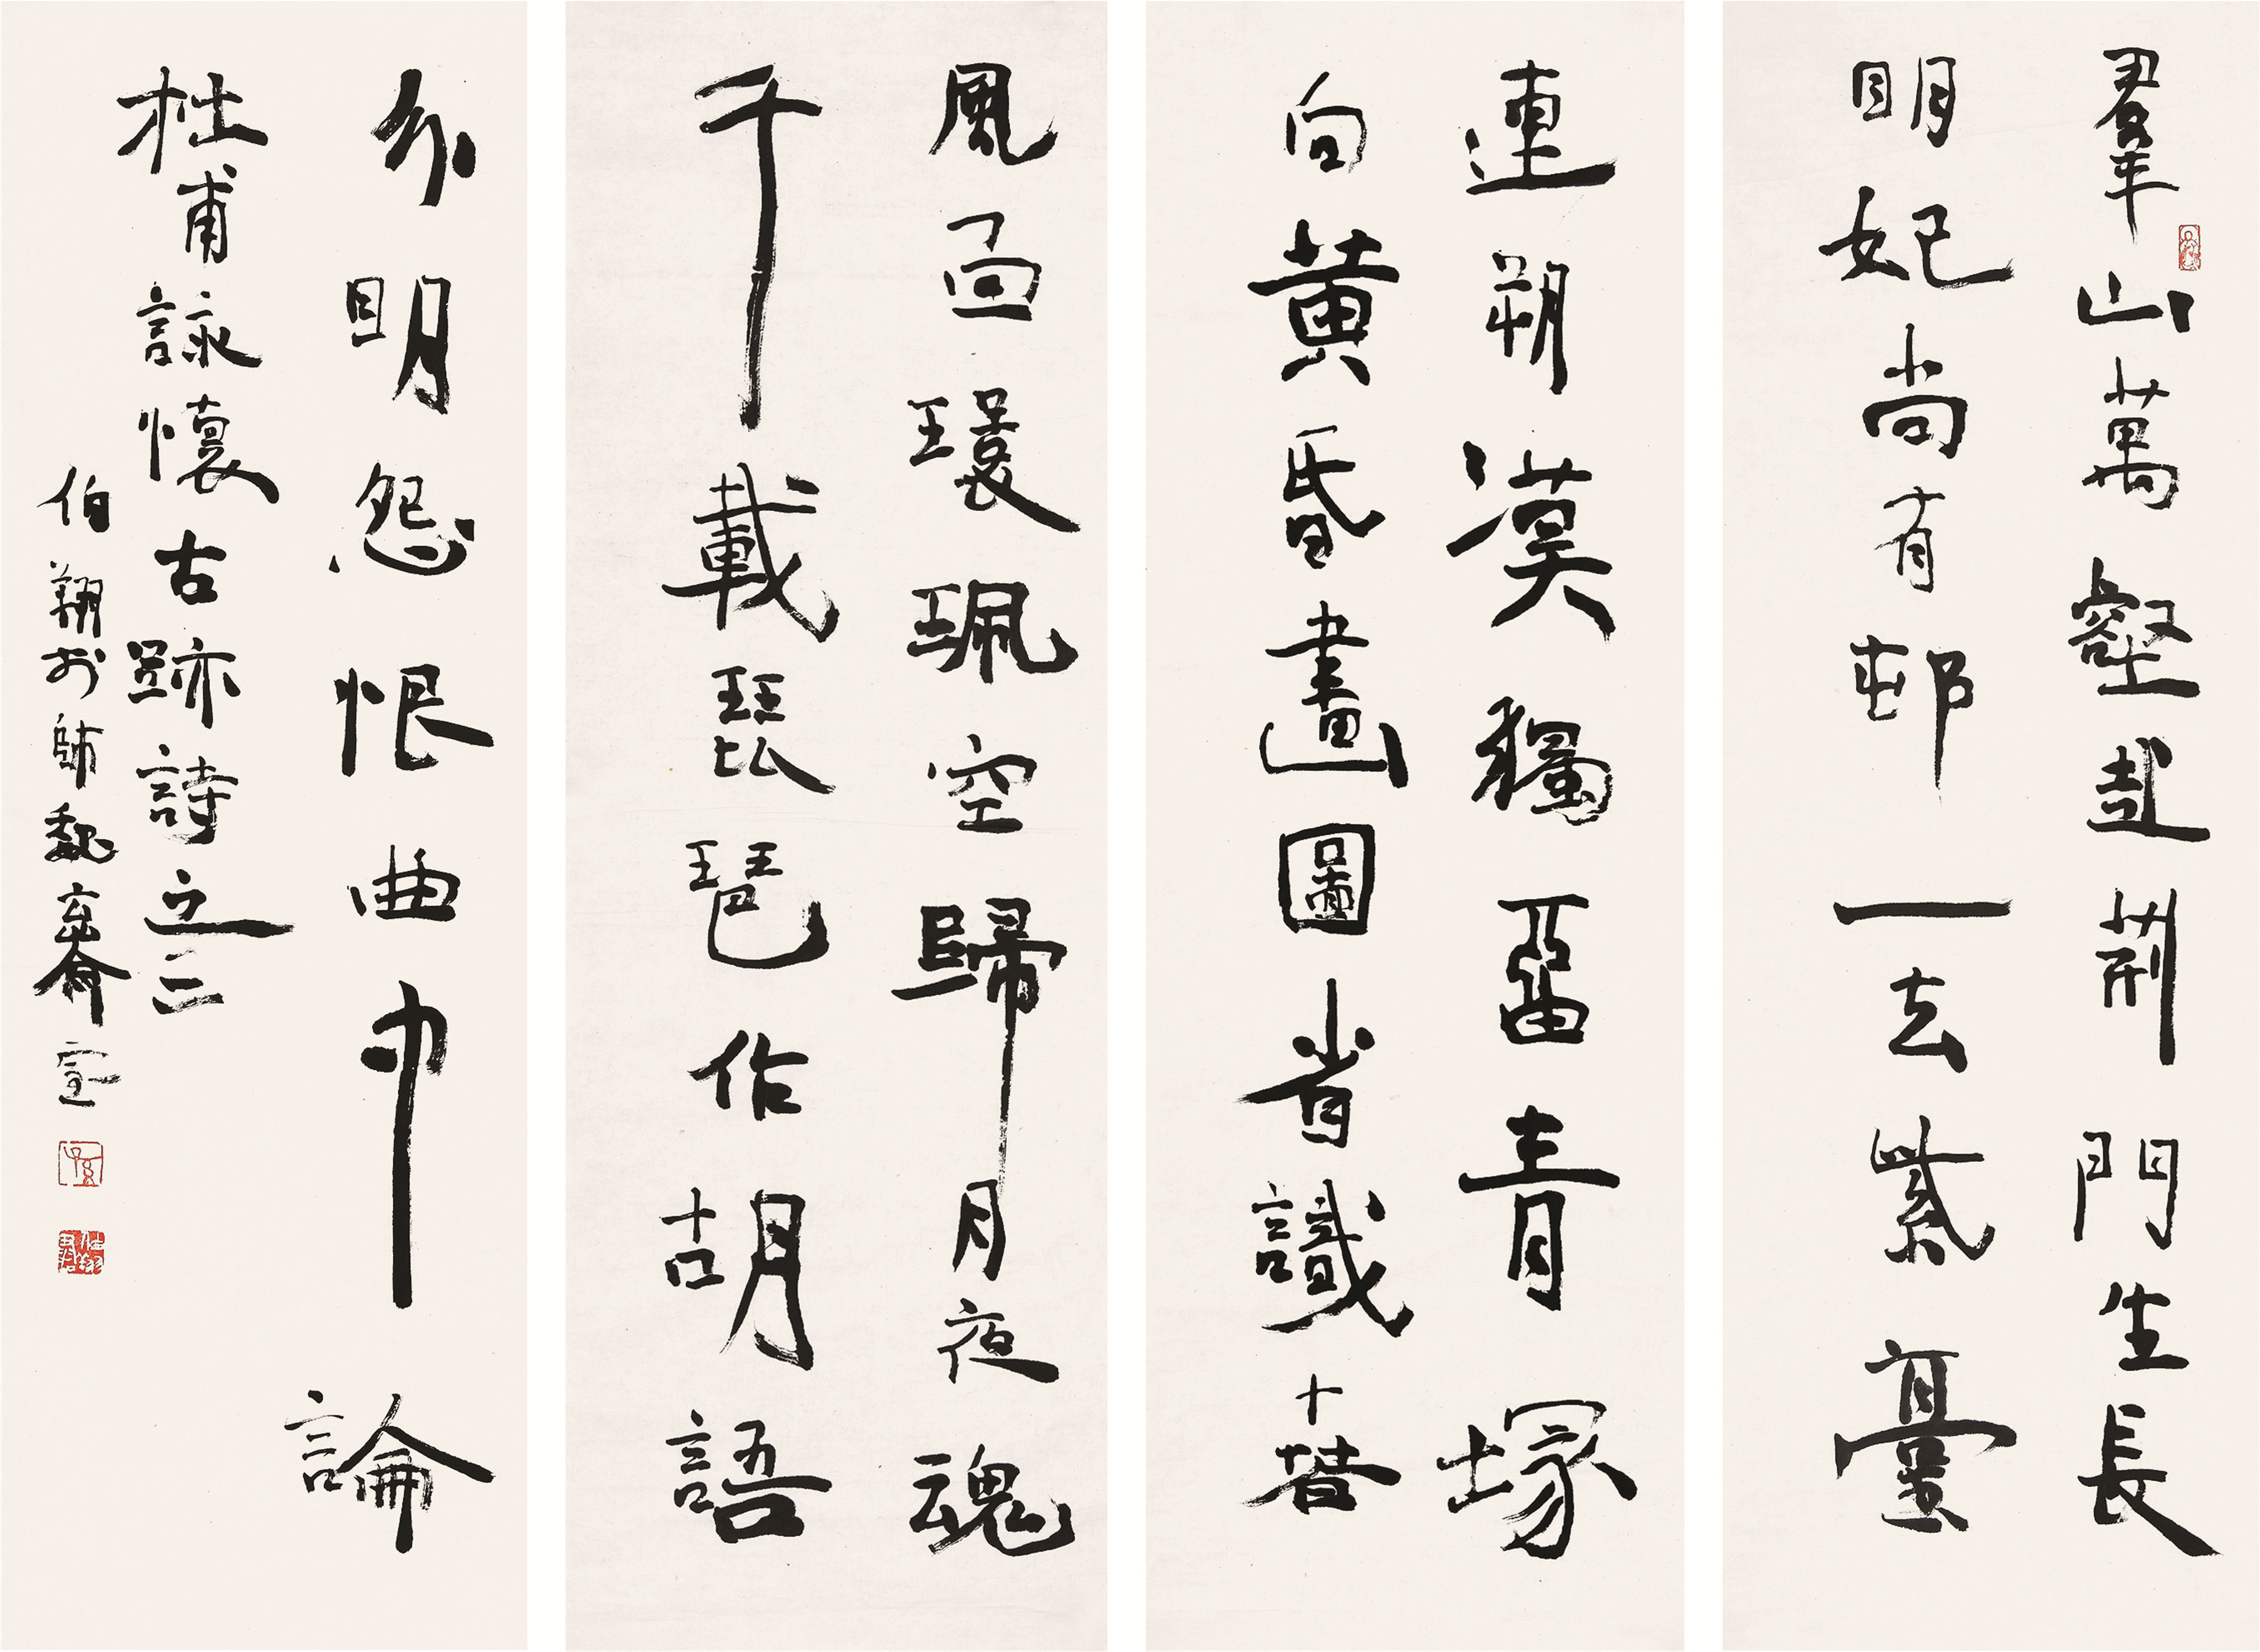 羣山萬壑赴荊門生長
明妃尚有邨一去紫臺
連朔漠獨畱青塚
向黃昏畫圖省識萅
風面環珮空歸月夜魂
千載琵琶作胡語
分明怨恨曲中論
杜甫詠懷古跡詩之三
伯翔於師魏齋